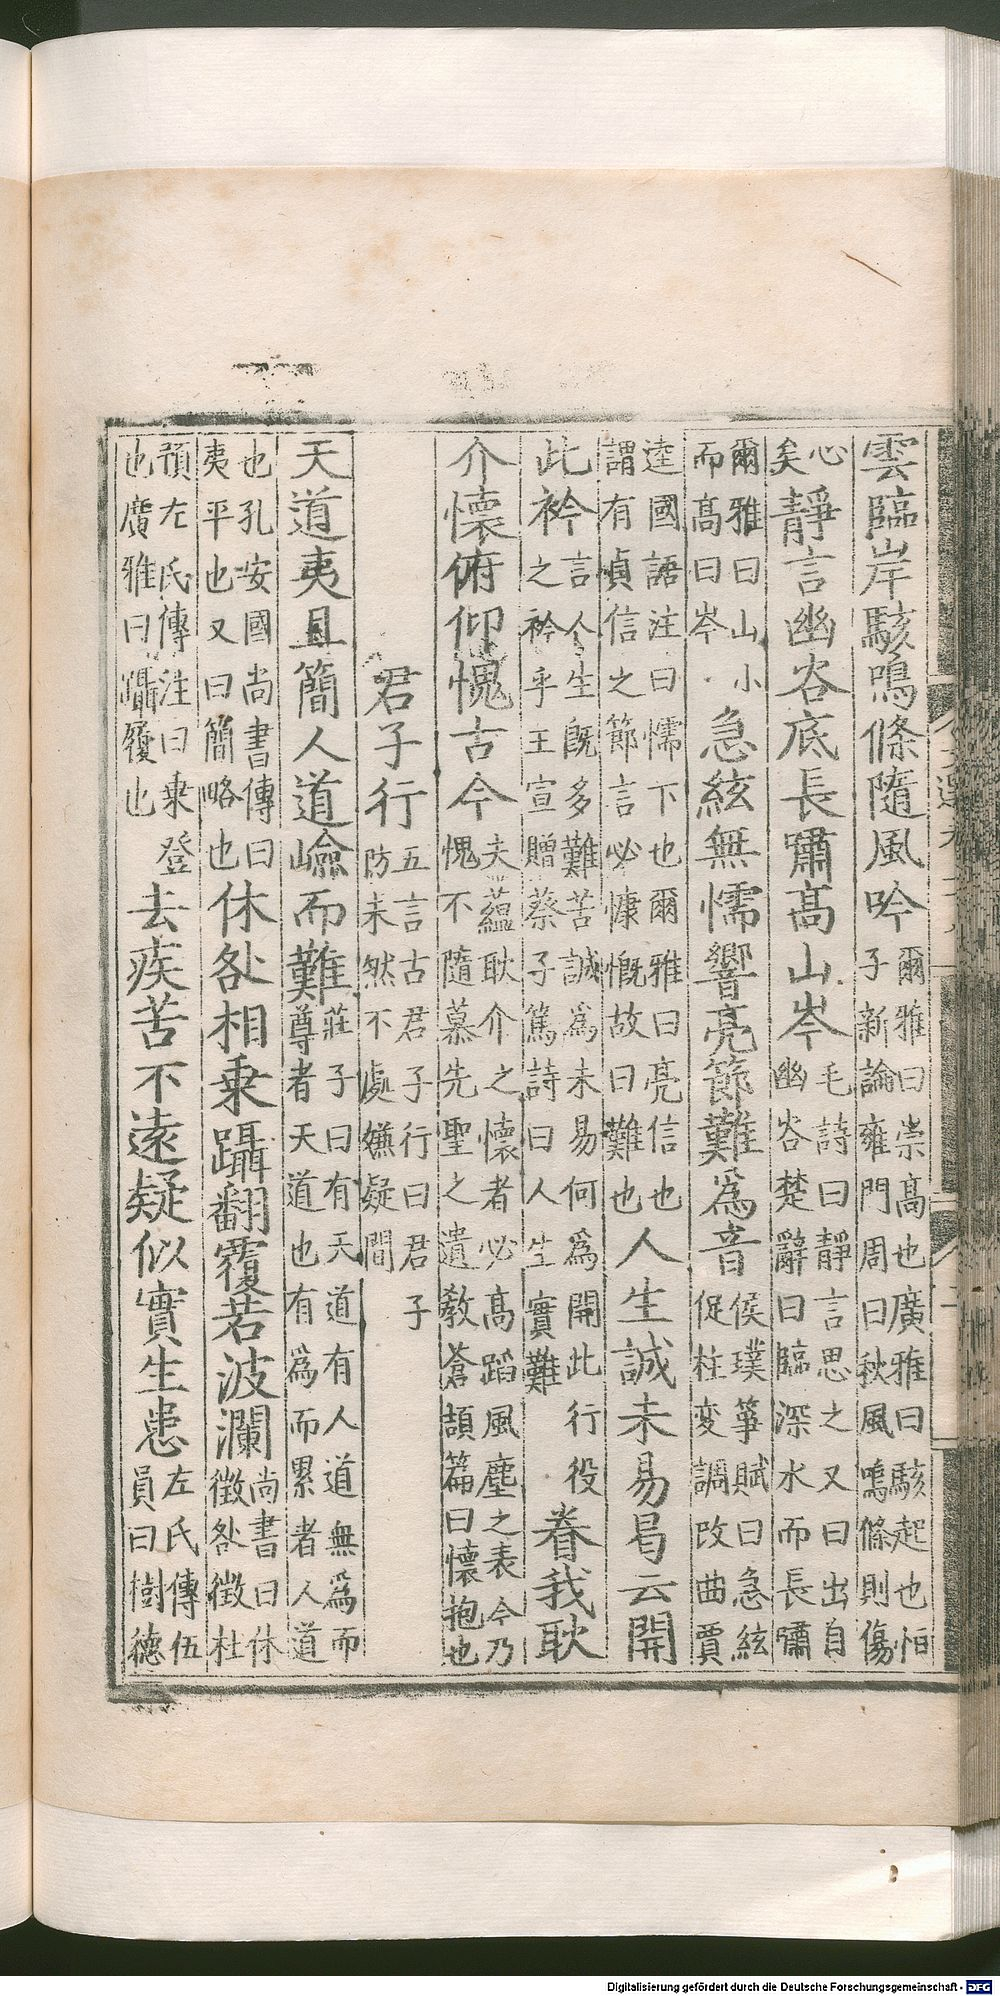 雲臨岸駭鳴條隨風吟爾雅曰崇髙也廣雅曰駭起也桓
子新論雍門周曰秋風鳴條則傷
心
矣靜言幽谷底長嘯髙山岑毛詩曰靜言思之又曰出自
幽谷楚辭曰臨深水而長嘯
爾雅曰山小
而髙曰岑急絃無懦響亮節難爲音侯璞筝賦曰急絃
促柱変調改曲賈
逵國語注曰懦下也爾雅曰亮信也
謂有貞信之節言必慷慨故曰難也人生誠未易曷云開
此衿言人生既多難苦誠爲未易何爲開此行役
之衿乎王宣贈蔡子篤詩曰人生實難眷我耿
介懷俯仰愧古今夫蘊耿介之懷者必髙蹈風塵之表今乃
愧不隨慕先聖之遺敎蒼頡篇曰懷抱也
君子行五言古君子行曰君子
防未然不處嫌疑間
天道夷且簡人道嶮而難莊子曰有天道有人道無爲而
尊者天道也有爲而累者人道
也孔安國尚書傳曰
夷平也又曰簡略也休咎相乗躡翻覆若波瀾尚書曰休
徵咎徵杜
預左氏傳注曰乗登
也廣雅曰躡履也去疾苦不遠疑似實生患左氏傳伍
員曰樹德
Digitalisierung gefördert durch die Deutsche Forschungsgemeinschaft - DFG